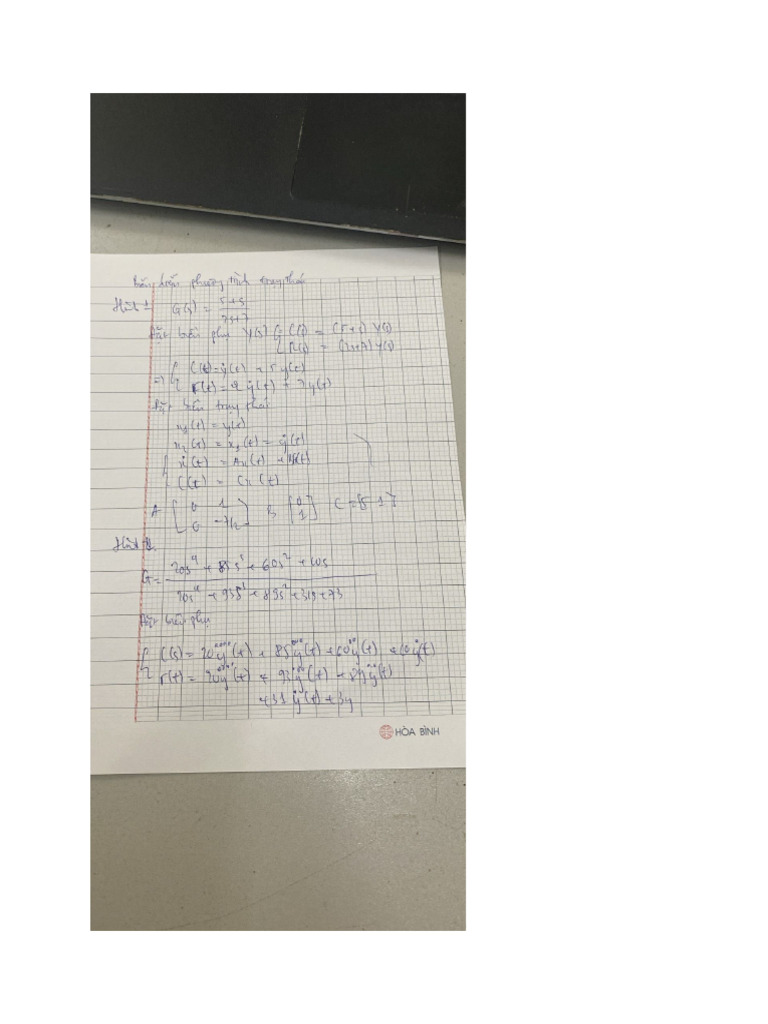 Biến diễn phương trình trạng thái
Hình 1 G(s) = 5+s / 2s+7
Đặt biến phụ Y(s) { C(s) = (5+s) Y(s)
R(s) = (2s+7) Y(s)
=> { C(t) = ẏ(t) + 5y(t)
r(t) = 2ẏ(t) + 7y(t)
Đặt biến trạng thái
x₁(t) = y(t)
x₂(t) = ẋ₁(t) = ẏ(t)
{ ẋ(t) = Ax(t) + Br(t)
C(t) = Cx(t)
A [ 0 1
0 -7/2 ] B [ 0
1 ] C = [5 1]
Hình 2.
G = 20s⁴ + 85s³ + 60s² + 60s
20s⁴ + 93s³ + 89s² + 31s + 73
Đặt biến phụ
{ C(s) = 20y⃜(t) + 85y⃛(t) + 60ÿ(t) + 60ẏ(t)
r(t) = 20y⃜(t) + 93y⃛(t) + 89ÿ(t)
+ 31ẏ(t) + 3y
HÒA BÌNH